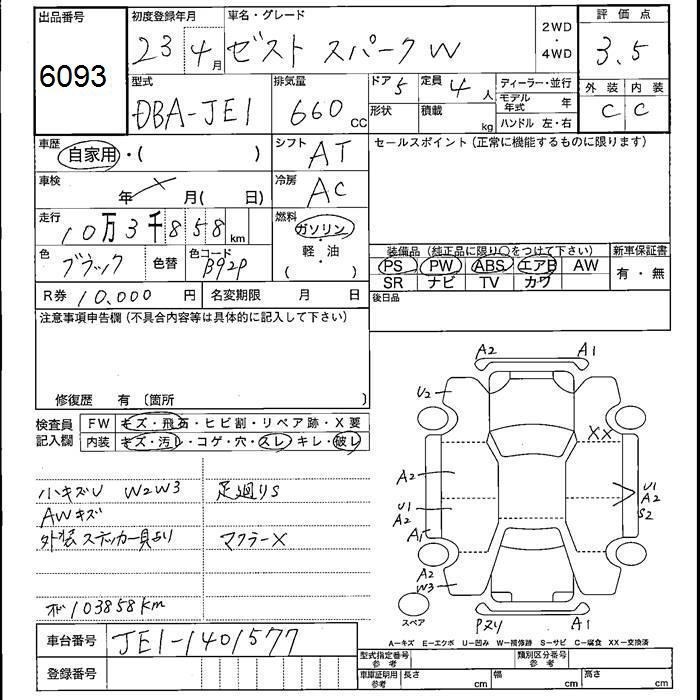 出品番号 初度登録年月 車名・グレード 2WD・4WD 評価点
6093 23年4月 ゼスト スパークW 3.5
型式 排気量 ドア 5 定員 4人 ディーラー・並行 外装 内装
DBA-JE1 660cc 形状 積載 kg モデル年式 年 C C
ハンドル 左・右
車歴 自家用・( ) シフト AT セールスポイント(正常に機能するものに限ります)
車検 年 月( 日) 冷房 AC
走行 10万3千858km 燃料 ガソリン 軽・油 ( )
色 ブラック 色替 色コード B92P
装備品(純正品に限り○をつけて下さい) 新車保証書
PS PW ABS エアB AW 有・無
SR ナビ TV カワ
R券 10,000円 名変期限 月 日 後日品
注意事項申告欄(不具合内容等は具体的に記入して下さい)
修復歴 有〔箇所 〕
検査員記入欄 FW キズ・飛石・ヒビ割・リペア跡・X要
内装 キズ・汚レ・コゲ・穴・スレ・キレ・破レ
ハキズU W2W3 足廻りS
AWキズ
外装ステッカー貝占り マフラーX
メ 103858km
車台番号 JE1-1401577
登録番号
A2 A1
U2
XX
A2
U1
A2
A1
U1
A2
S2
A2
W3
スペア
Pヌリ A1
A−キズ E−エクボ U−凹み W−補修跡 S−サビ C−腐食 XX−交換済
型式指定番号 参考 類別区分番号 参考
車庫証明用 参考 長さ cm 幅 cm 高さ cm